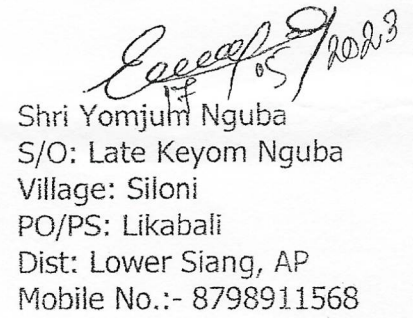 17/05/2023
Shri Yomjum Nguba
S/O: Late Keyom Nguba
Village: Siloni
PO/PS: Likabali
Dist: Lower Siang, AP
Mobile No.:- 8798911568